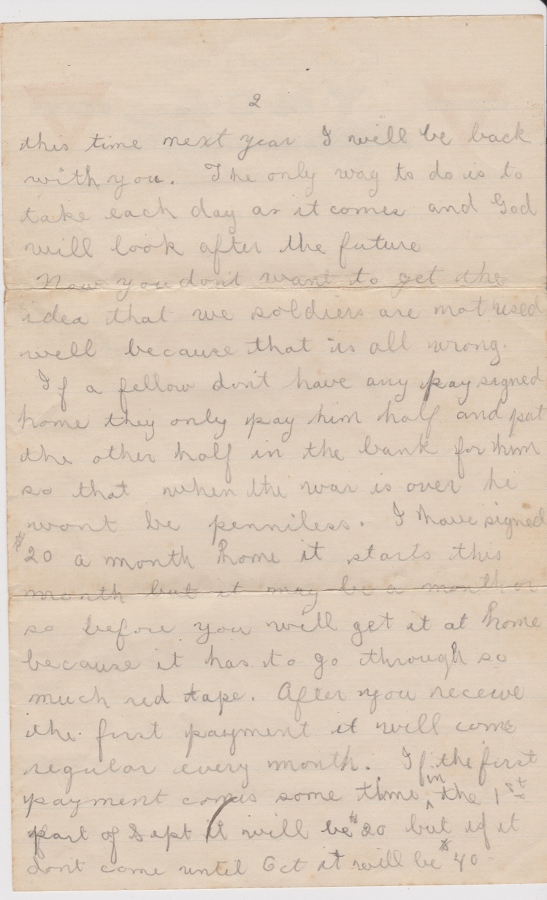 2
this time next year I will be back
with you. The only way to do is to
take each day as it comes and God
will look after the future
Now you dont want to get the
idea that we soldiers are not used
well because that is all wrong.
If a fellow don't have any pay signed
home they only pay him half and put
the other half in the bank for him
so that when the war is over he
wont be penniless. I have signed
$20 a month home it starts this
month but it may be a month or
so before you will get it at home
because it has to go through so
much red tape. After you receive
the first payment it will come
regular every month. If the first
payment comes some time in the 1st
part of Sept it will be $20 but if it
dont come until Oct it will be $40